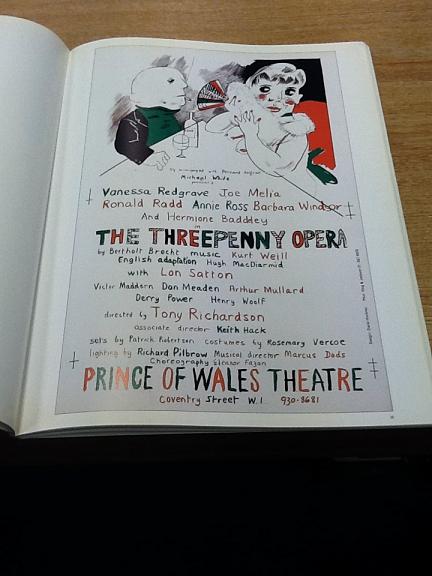 by arrangement with Bernard Delfont
Michael White
presents
Vanessa Redgrave Joe Melia
Ronald Radd Annie Ross Barbara Windsor
And Hermione Baddeley
in
THE THREEPENNY OPERA
by Bertholt Brecht music Kurt Weill
English adaptation Hugh MacDiarmid
with Lon Satton
Victor Maddern Dan Meaden Arthur Mullard
Derry Power Henry Woolf
directed by Tony Richardson
associate director Keith Hack
sets by Patrick Robertson costumes by Rosemary Vercoe
lighting by Richard Pilbrow Musical director Marcus Dods
Choreography Eleanor Fazan
PRINCE OF WALES THEATRE
Coventry Street W.1. 930-8681